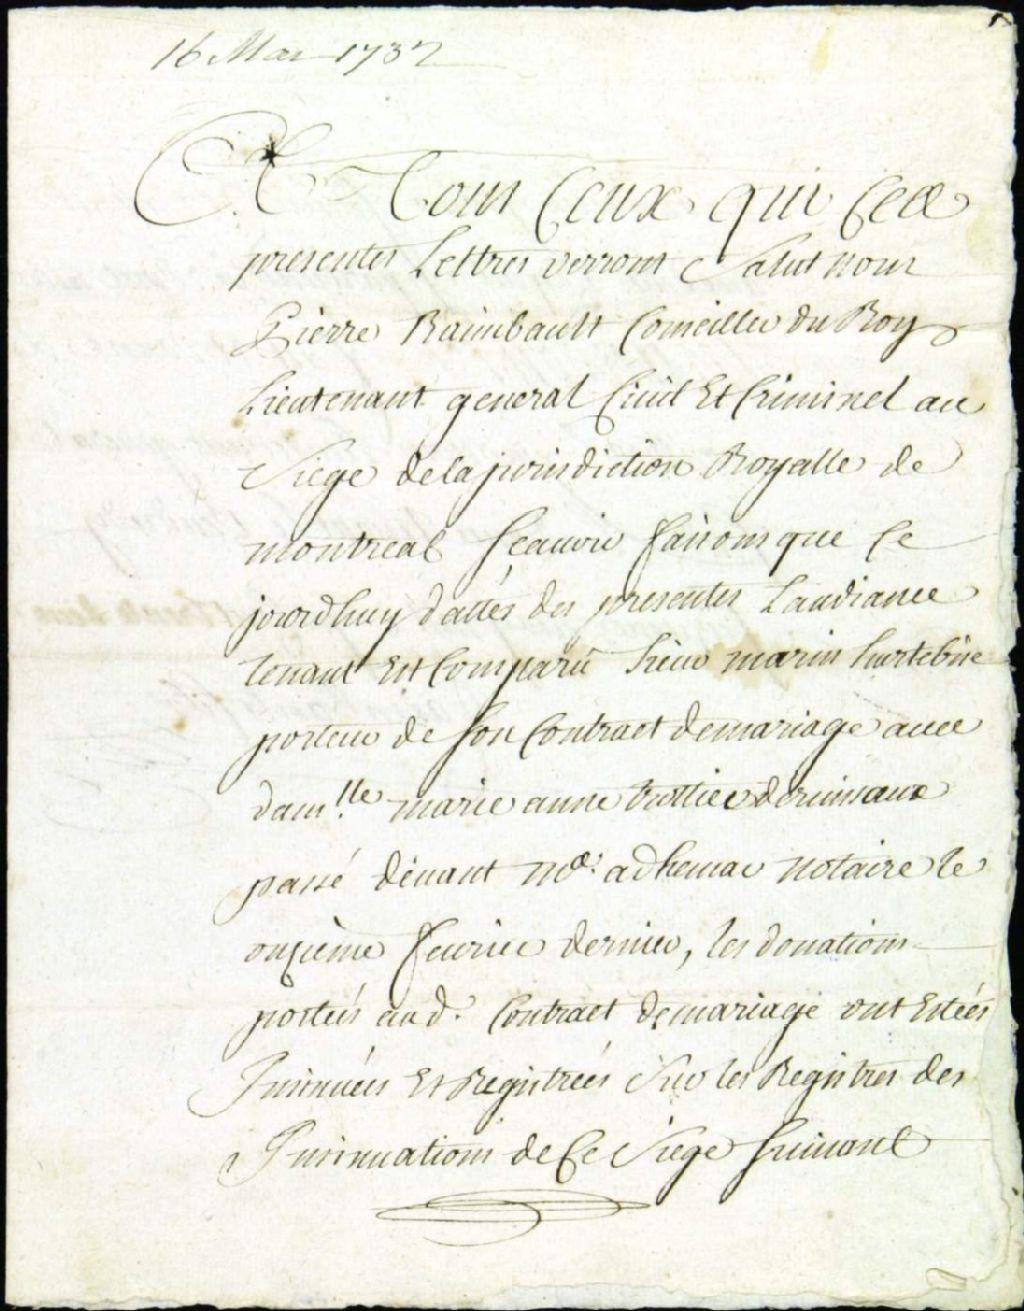 16 Mar 1732
A Tous Ceux qui Ces
presentes Lettres verront Salut nous
Pierre Raimbault Conseiller du Roy
Lieutenant general Civil Et Criminel au
Siege de la jurisdiction Royalle de
montreal sçauoir faisons que Ce
jourdhuy dattes des presentes Laudiance
tenant Est Comparû sieur marin hurtebise
porteur de son Contract de mariage avec
dam.lle marie anne trottier desruisseaux
passé deuant Me. adhemar notaire le
onzieme feurier dernier, les donations
portées aud. Contract de mariage ont Estées
Insinuées Et Registrées sur les Registres des
Insinuations de Ce Siege suiuant